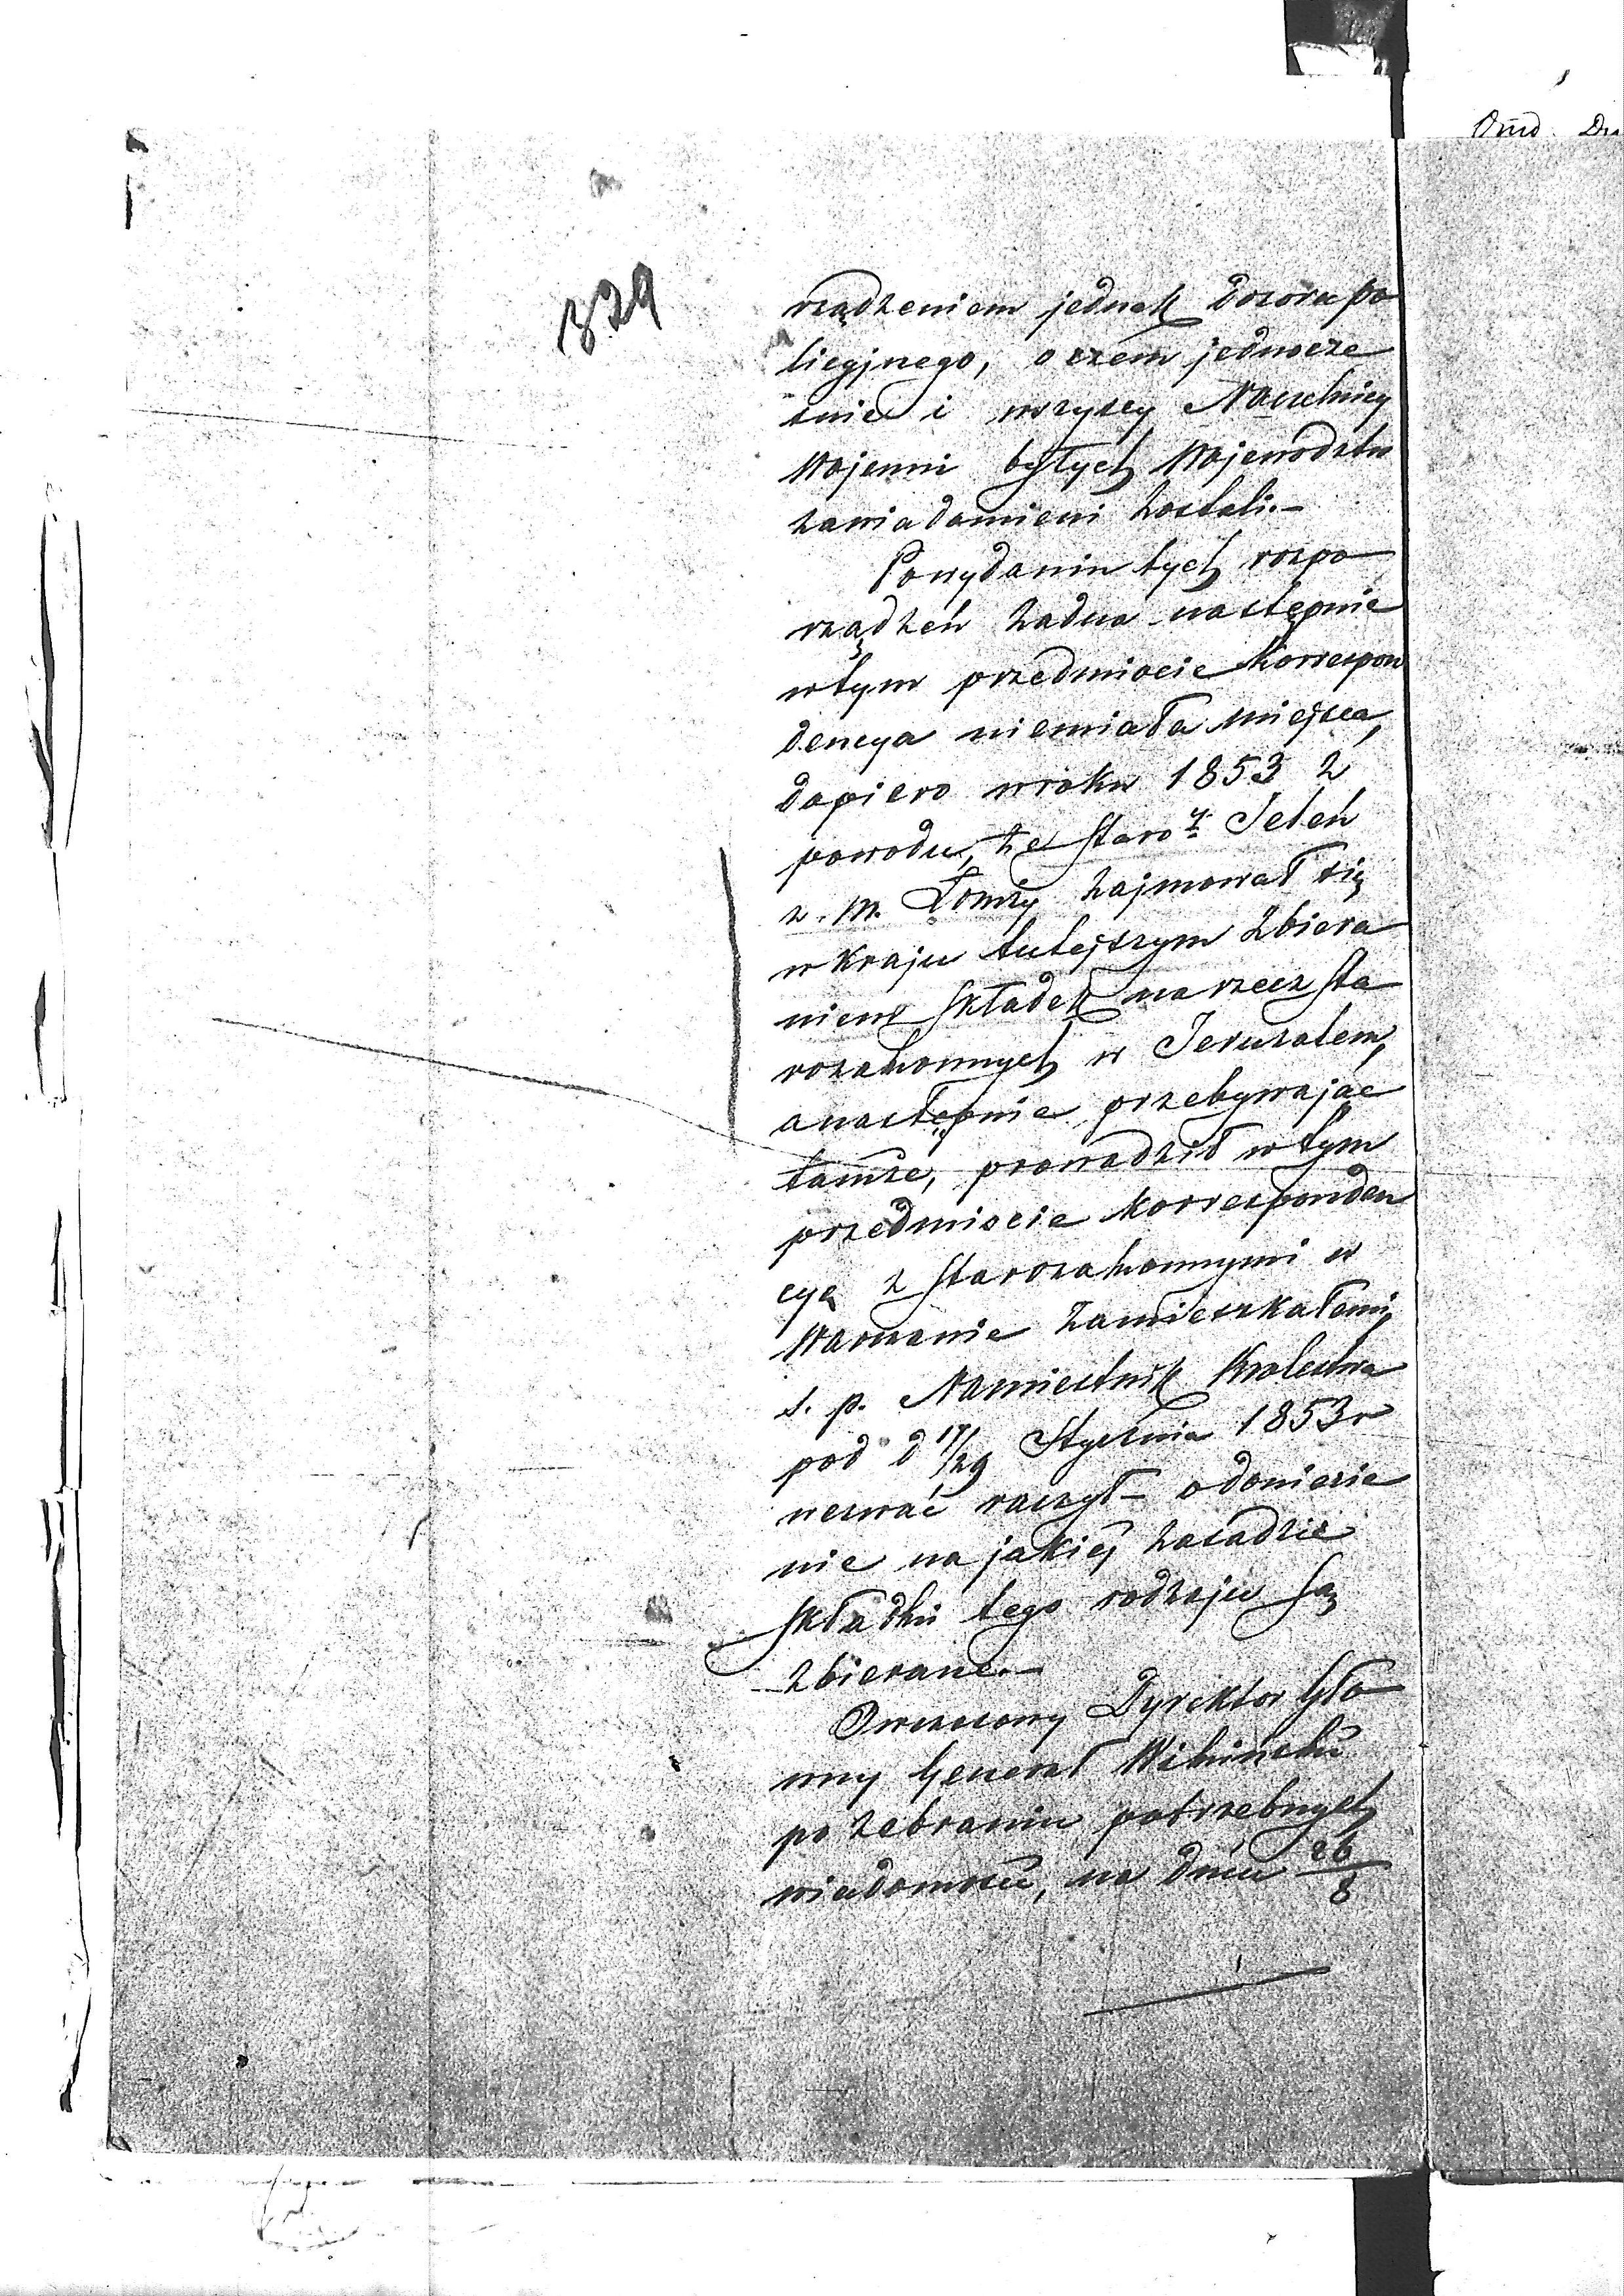 329
rządzeniem jednak dozoru po
licyjnego, o czem jednocze
śnie i wszyscy Naczelnicy
Wojenni byłych Województw
zawiadomieni zostali.-
Powydaniu tych rozpo
rządzeń żadna następnie
wtym przedmiocie Korrespon
dencya niemiała miejsca,
dopiero wroku 1853 z
powodu, że Staro^z Jeleń
z. m. Łomży zajmował się
w Kraju tutejszym zbiera
niem składek na rzecz sta
rozakonnych w Jeruzalem,
anastępnie przebywając
tamże, prowadził w tym
przedmiocie Korresponden
cyę z starozakonnymi w
Warszawie zamieszkałemi,
s. p. Namiestnik Królestwa
pod d 17/29 Stycznia 1853 r
wezwać raczył - o doniesie
nie na jakiej zasadzie
składki tego rodzaju są
zbierane.-
Owczesowy Dyrektor Głó
wny Generał Wikiński
po zebraniu potrzebnych
wiadomości, na dniu 26/8